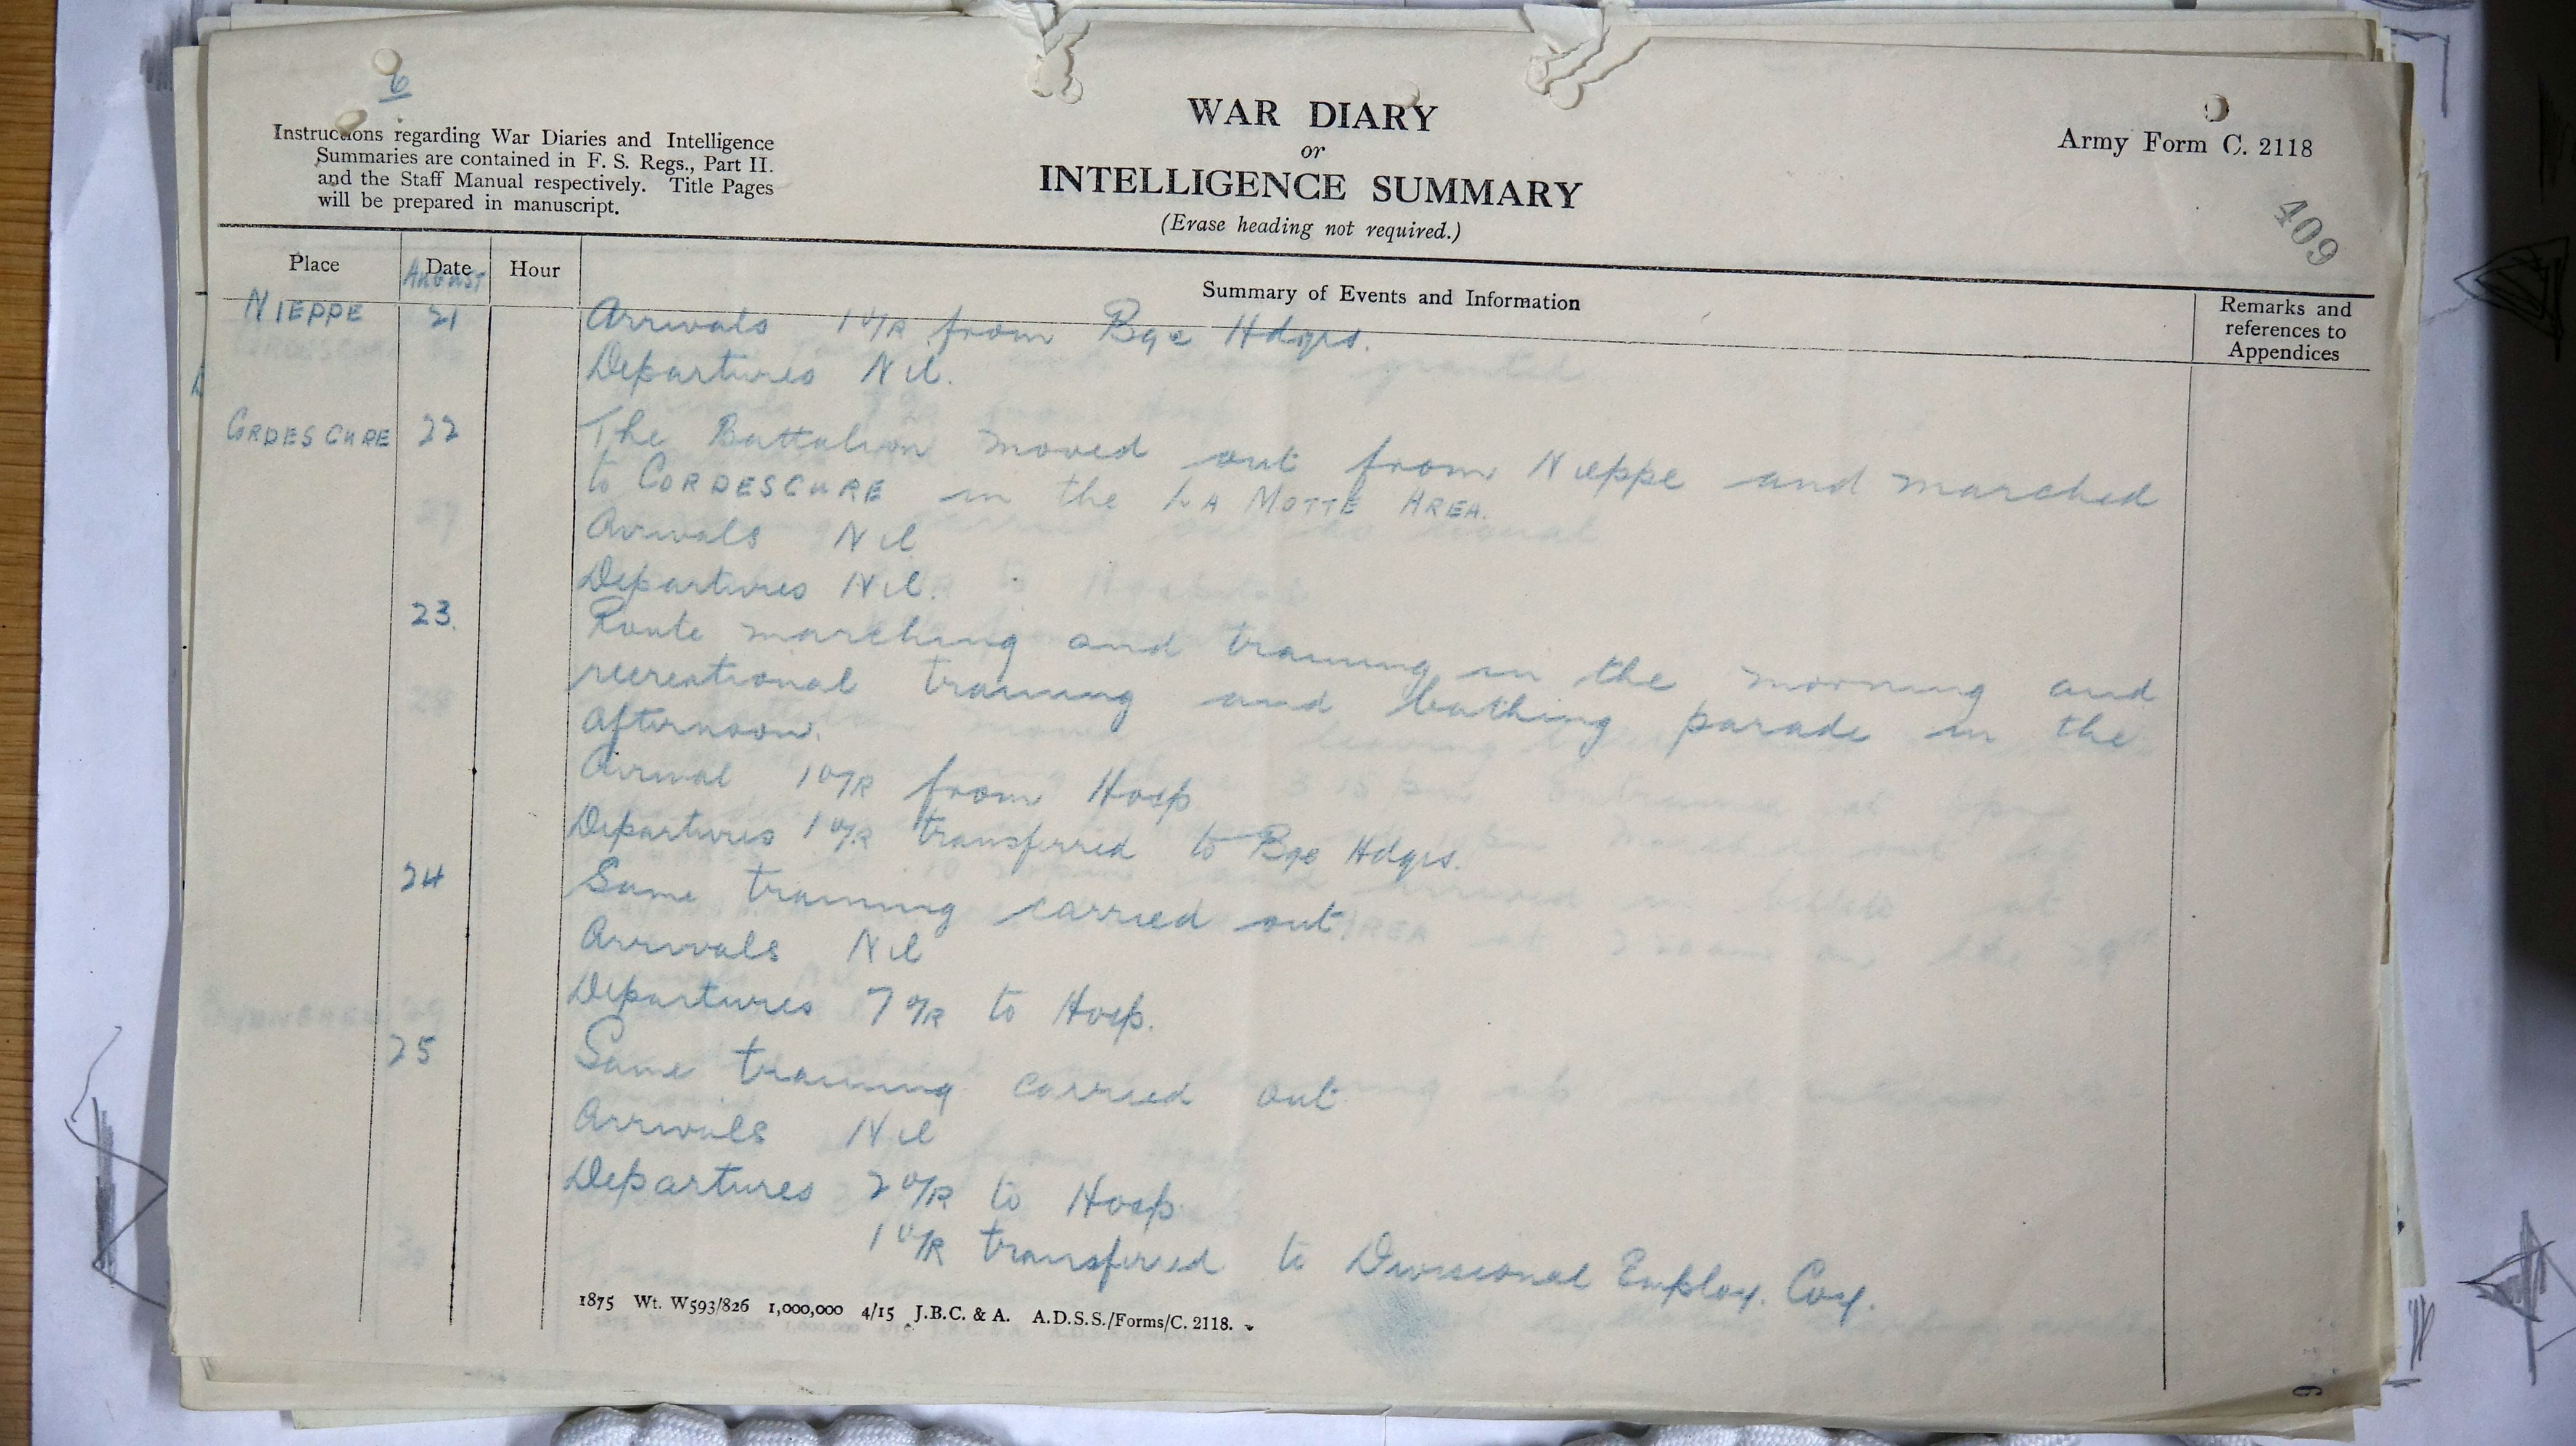 6
Instructions regarding War Diaries and Intelligence
Summaries are contained in F. S. Regs., Part II.
and the Staff Manual respectively. Title Pages
will be prepared in manuscript.
WAR DIARY
or
INTELLIGENCE SUMMARY
(Erase heading not required.)
Army Form C. 2118
409
Place Date Hour Summary of Events and Information Remarks and
references to
Appendices
August
NIEPPE 21 Arrivals 1 O/R from Bge Hdqrs.
Departures Nil.
CORDESCURE 22 The Battalion moved out from Nieppe and marched
to CORDESCURE in the LA MOTTE AREA.
Arrivals Nil
Departures Nil.
23. Route marching and training in the morning and
recreational training and bathing parade in the
afternoon.
Arrival 1 O/R from Hosp
Departures 1 O/R transferred to Bge Hdqrs.
24 Same training carried out.
Arrivals Nil
Departures 7 O/R to Hosp.
25 Same training carried out
Arrivals Nil
Departures 2 O/R to Hosp
1 O/R transferred to Divisional Employ. Coy.
1875 Wt. W593/826 1,000,000 4/15 J.B.C. & A. A.D.S.S./Forms/C. 2118.